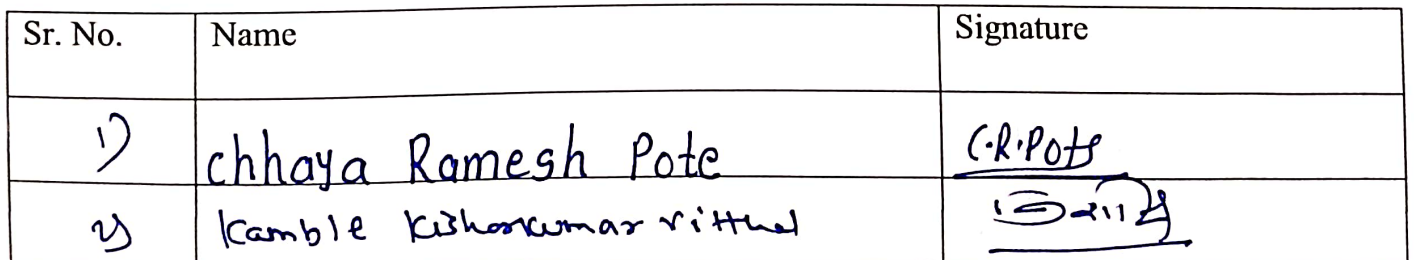 Sr. No. Name Signature
1) chhaya Ramesh Pote C.R.Pote
2) Kamble Kishorkumar Vitthal